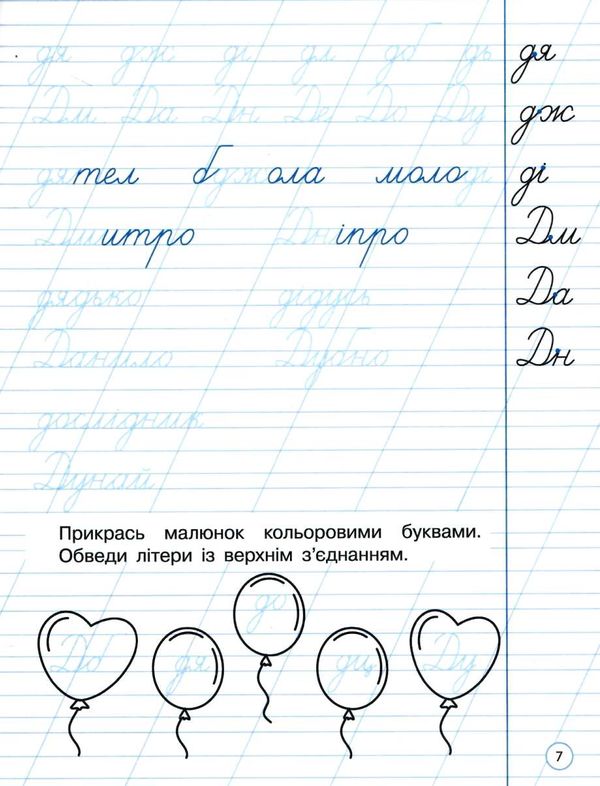 дя дж ді дл дь дя
Дм Да Дн Де До Ду дж
дятел бджола молоді ді
Дмитро Дніпро Дм
дядько дідусь Да
Данило Дубно Дн
дослідник
Дунай
Прикрась малюнок кольоровими буквами.
Обведи літери із верхнім з’єднанням.
до
дя дц Ду
7